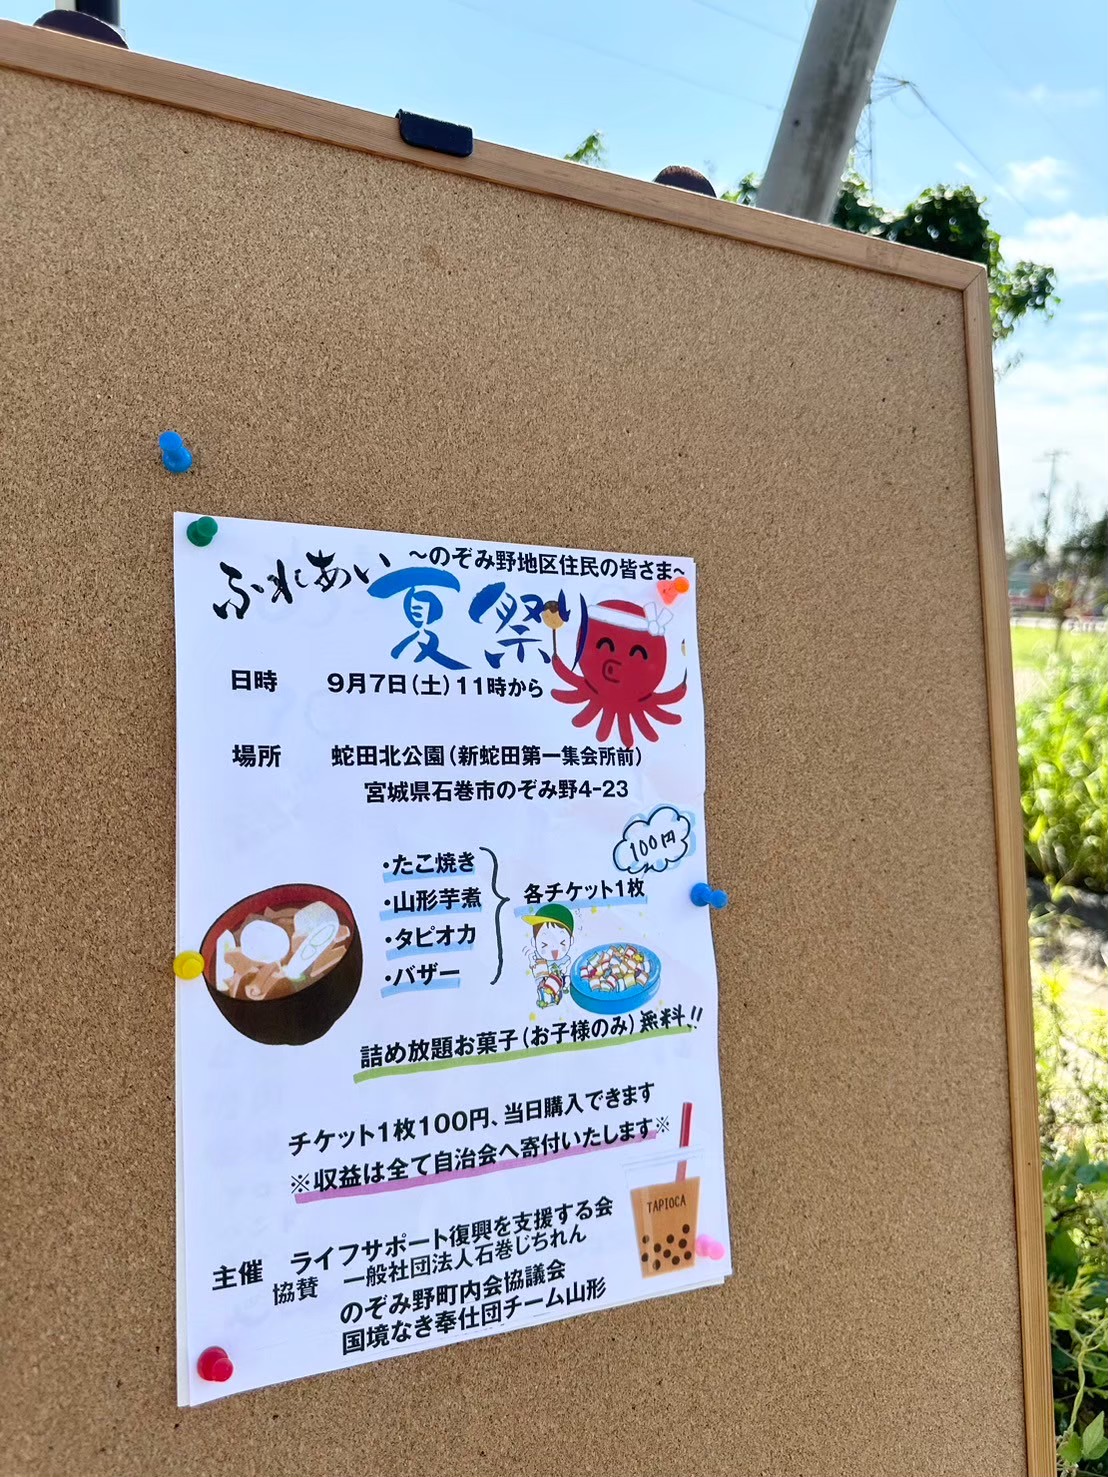 ～のぞみ野地区住民の皆さま～
ふれあい夏祭り
日時 9月7日(土)11時から
場所 蛇田北公園(新蛇田第一集会所前)
宮城県石巻市のぞみ野4-23
100円
・たこ焼き
・山形芋煮
・タピオカ
・バザー
各チケット1枚
詰め放題お菓子(お子様のみ)無料!!
チケット1枚100円、当日購入できます
※収益は全て自治会へ寄付いたします※
TAPIOCA
主催 ライフサポート復興を支援する会
協賛 一般社団法人石巻じちれん
のぞみ野町内会協議会
国境なき奉仕団チーム山形